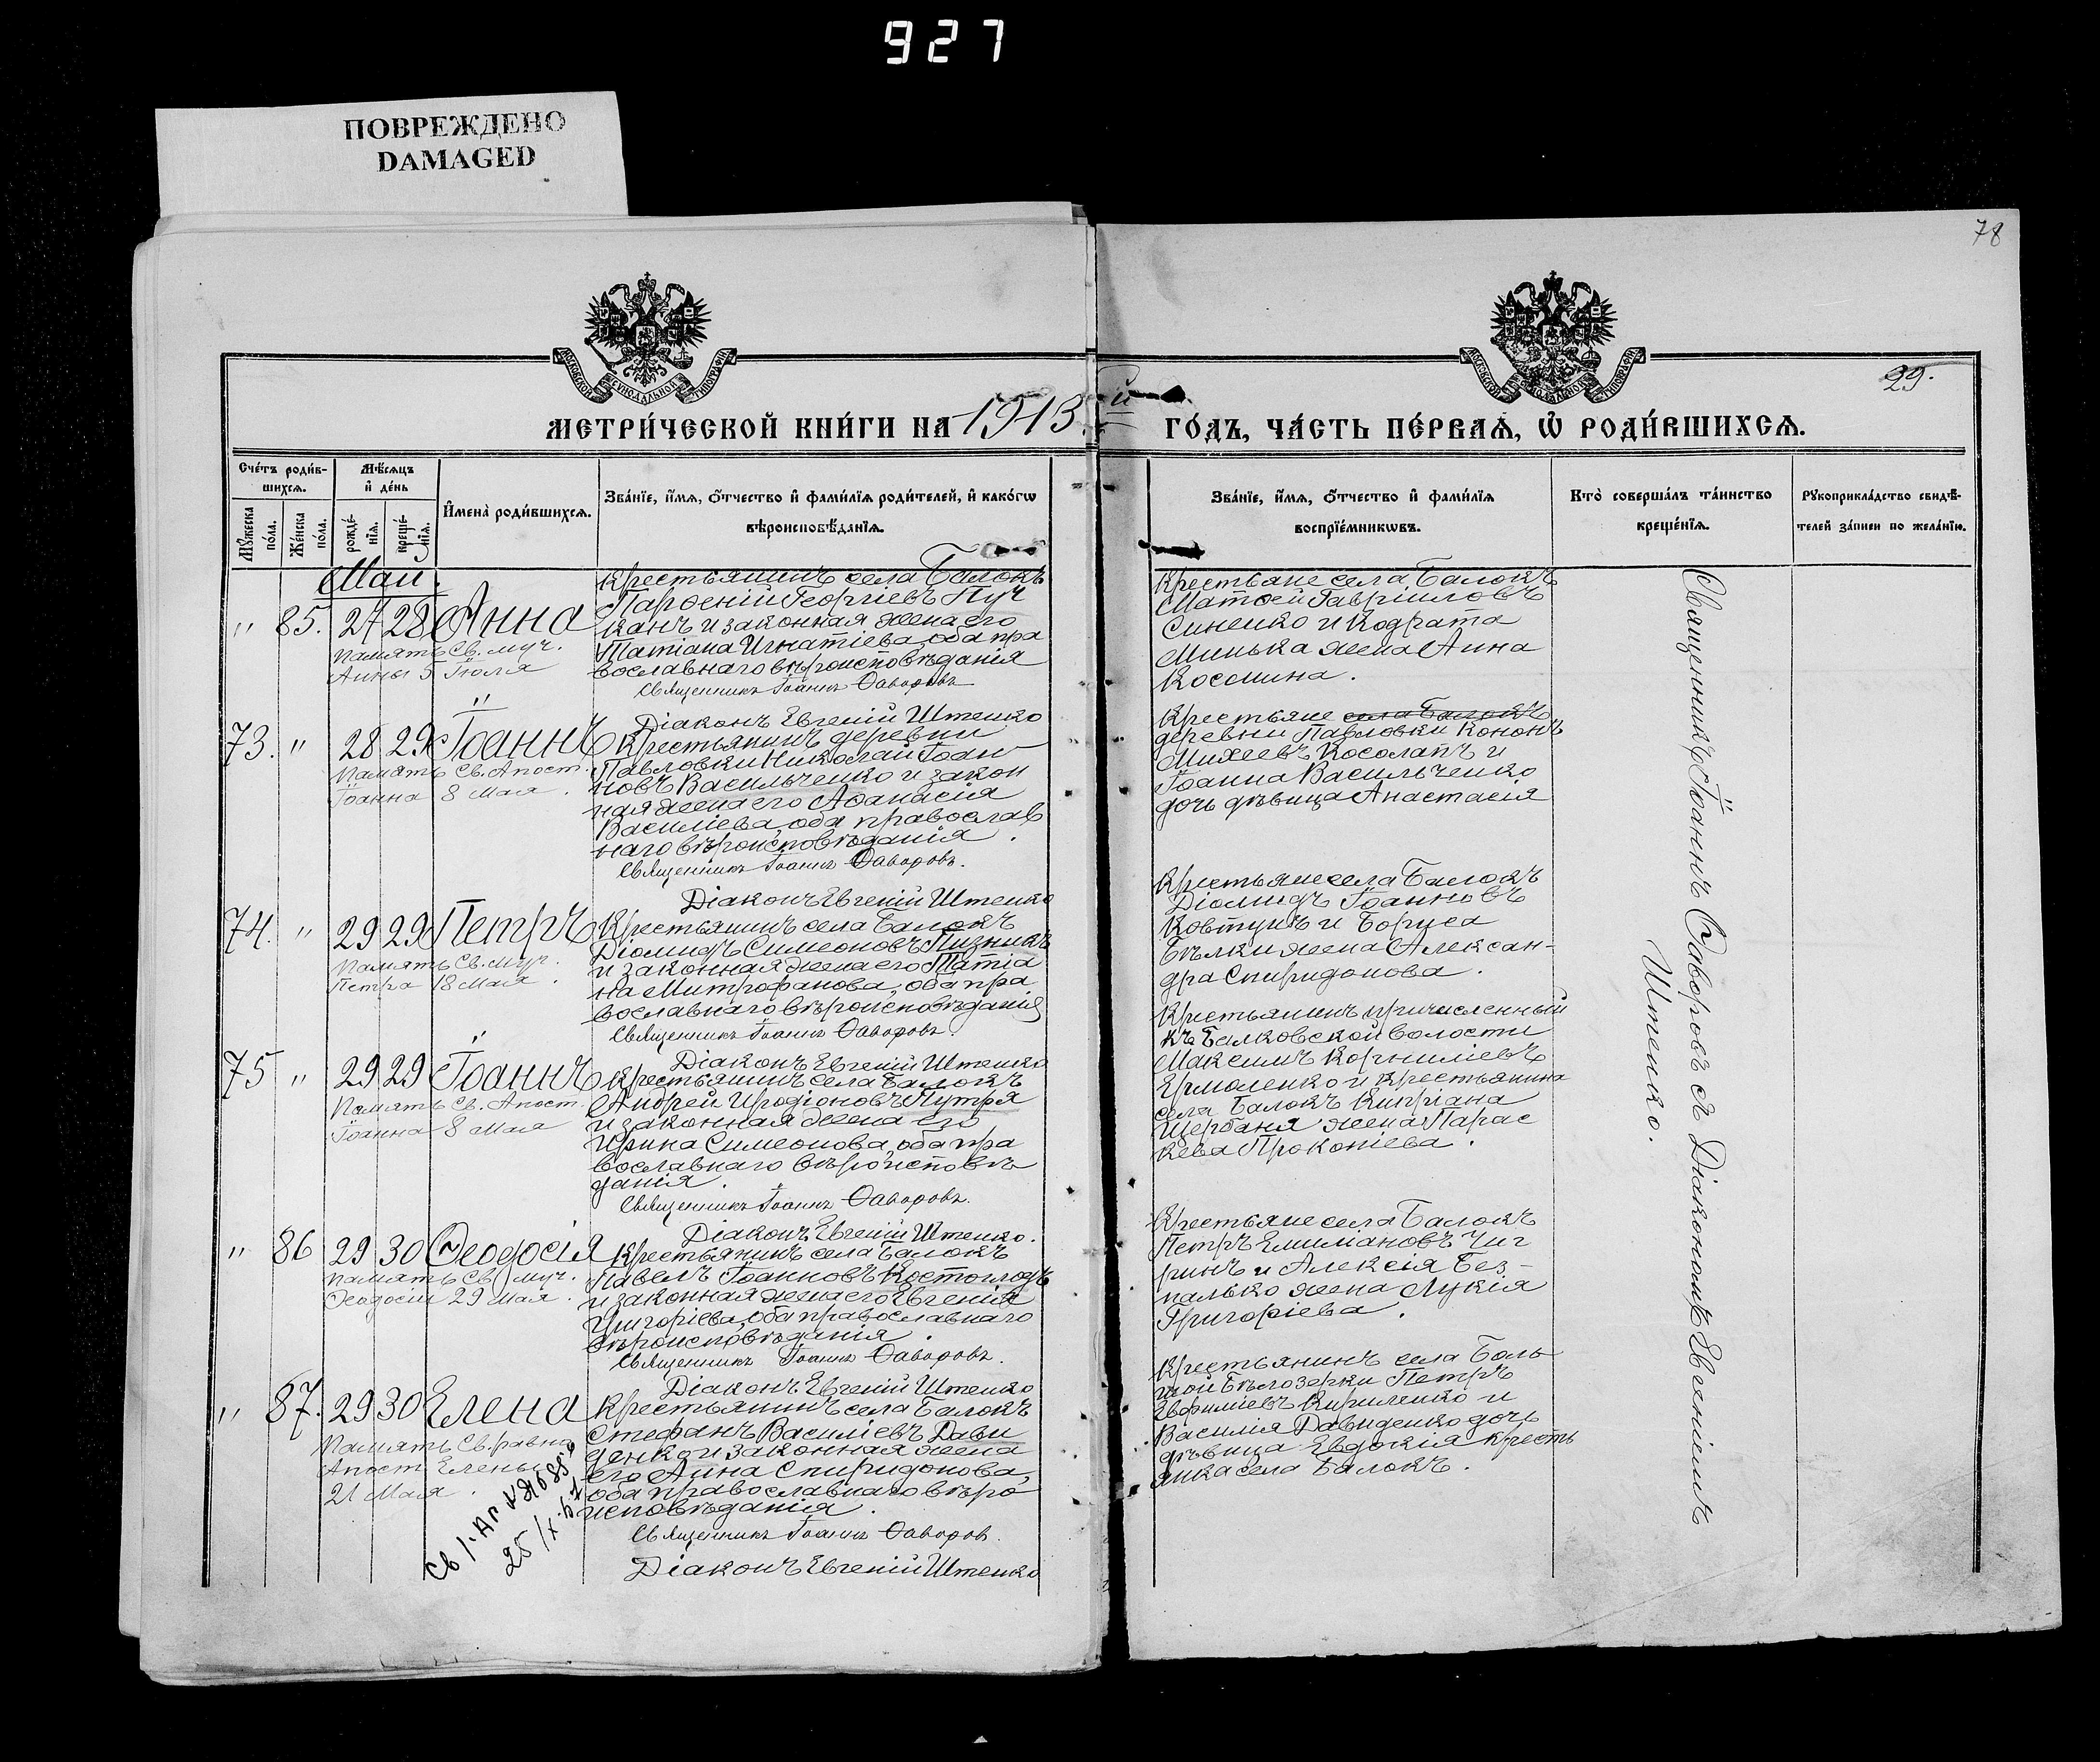 927
ПОВРЕЖДЕНО
DAMAGED
78
29.
МОСКОВСКОЙ СѴНОДАЛЬНОЙ ТИПОГРАФІИ
МОСКОВСКОЙ СѴНОДАЛЬНОЙ ТИПОГРАФІИ
МЕТРИ́ЧЕСКОЙ КНИ́ГИ НА 1913.й ГО́ДЪ, ЧА́СТЬ ПЕ́РВАѦ, Ѡ҆ РОДИ́ВШИХСѦ.
Сче́тъ роди́в-
шихсѧ.
Мѣ́сѧцъ
и҆ де́нь
Мꙋ́жеска
по́ла.
Же́нска
по́ла.
рожде́-
нїѧ.
креще́-
нїѧ.
И҆мена̀ роди́вшихсѧ.
Зва́нїе, и҆́мѧ, ѻ҆́тчество и҆ фами́лїѧ роди́телей, и҆ како́гѡ
вѣроисповѣ́данїѧ.
Зва́нїе, и҆́мѧ, ѻ҆́тчество и҆ фами́лїѧ
воспрїе́мникѡвъ.
Кто̀ соверша́лъ та́инство
креще́нїѧ.
Рꙋкоприкла́дство свидѣ́-
телей за́писи по жела́нїю.
Май.
" 85. 27 28 Анна
Память Св. муч.
Анны 5 Іюля
Крестьянинъ села Балокъ
Парѳеній Георгіевъ Пуч
канъ и законная жена его
Татіана Игнатіева, оба пра
вославнаго вѣроисповѣданія
Священникъ Іоаннъ Ѳаворовъ
Діаконъ Евгеній Штенко
Крестьяне села Балокъ
Матѳей Гавріиловъ
Синенко и Кодрата
Минька жена Анна
Космина.
73. " 28 29 Іоаннъ
Память Св. Апост.
Іоанна 8 Мая.
Крестьянинъ деревни
Павловки Николай Іоан
новъ Васильченко и закон
ная жена его Аѳанасія
Василіева, оба православ
наго вѣроисповѣданія.
Священникъ Іоаннъ Ѳаворовъ.
Діаконъ Евгеній Штенко
Крестьяне села Балокъ
деревни Павловки Кононъ
Михеевъ Косолапъ и
Іоанна Васильченко
дочь дѣвица Анастасія
74. " 29 29 Петръ
Память Св. Муч.
Петра 18 Мая.
Крестьянинъ села Балокъ
Діомидъ Симеоновъ Пизникъ
и законная жена его Татіа
на Митрофанова, оба пра
вославнаго вѣроисповѣданія
Священникъ Іоаннъ Ѳаворовъ
Діаконъ Евгеній Штенко
Крестьяне села Балокъ
Діомидъ Іоанновъ
Ковтунъ и Бориса
Бѣлки жена Алексан-
дра Спиридонова.
75 " 29 29 Іоаннъ
Память Св. Апост.
Іоанна 8 Мая
Крестьянинъ села Балокъ
Андрей Иродіоновъ Путря
и законная жена его
Ирина Симеонова, оба пра
вославнаго вѣроисповѣ
данія.
Священникъ Іоаннъ Ѳаворовъ.
Діаконъ Евгеній Штенко.
Крестьянинъ причисленный
къ Балковской волости
Максимъ Корниліевъ
Ермоленко и крестьянина
села Балокъ Кипріана
Щербаня жена Парас
кева Прокопіева.
" 86 29 30 Ѳеодосія
Память Св. муч.
Ѳеодосіи 29 Мая.
Крестьянинъ села Балокъ
Павелъ Іоанновъ Костоглодъ
и законная жена его Евгенія
Григоріева, оба православнаго
вѣроисповѣданія.
Священникъ Іоаннъ Ѳаворовъ.
Діаконъ Евгеній Штенко
Крестьяне села Балокъ
Петръ Емиліановъ Чиг
ринъ и Алексія Без-
палько жена Лукія
Григоріева.
" 87. 29 30 Елена
Память Св. равно
Апост Елены
21 Мая.
Крестьянинъ села Балокъ
Стефанъ Василіевъ Дави
денко и законная жена
его Анна Спиридонова,
оба православнаго вѣро
исповѣданія.
Священникъ Іоаннъ Ѳаворов.
Діаконъ Евгеній Штенко
Крестьянинъ села Боль
шой Бѣлозерки Петръ
Евфиміевъ Кириленко и
Василія Давиденко дочь
дѣвица Евдокія кресть
янка села Балокъ.
Священникъ Іоаннъ Ѳаворовъ съ Діакономъ Евгеніемъ
Штенко.